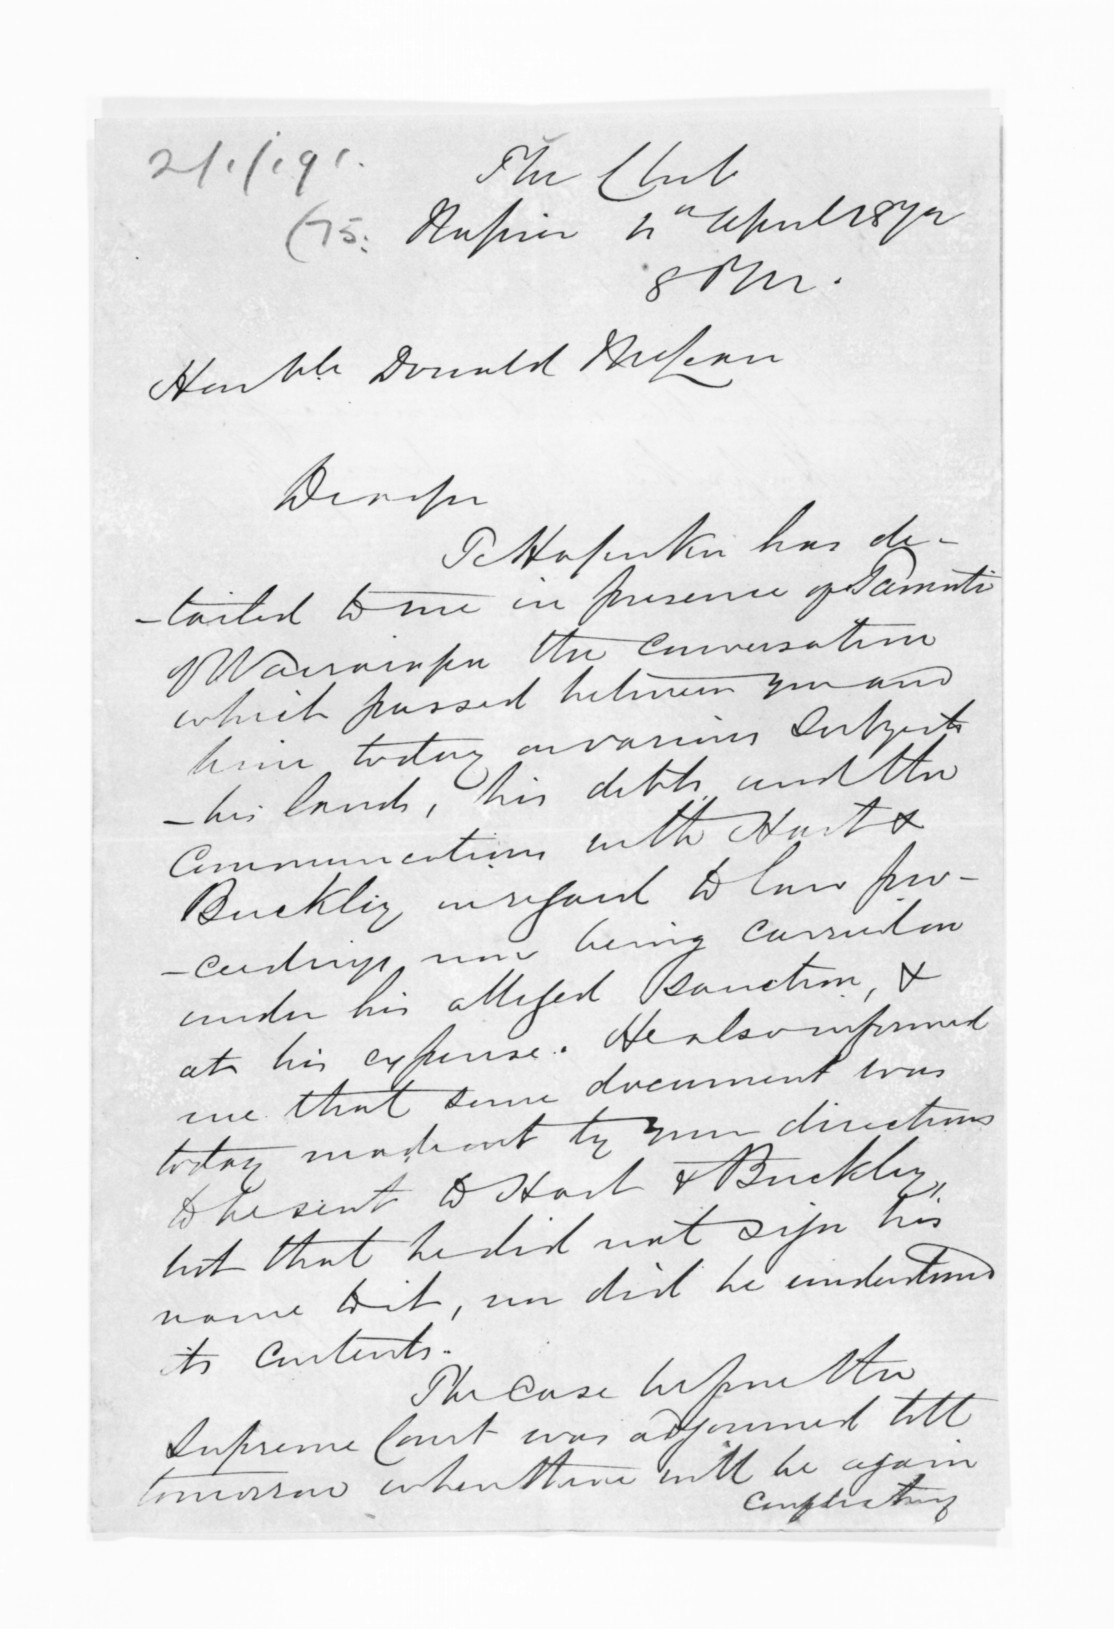 2/1/191.
The Club
(75: Napier 4th April 1872
8 PM.
Hon'ble Donald McLean
Dear Sir
Te Hapuku has de-
-tailed to me in presence of Tamati
of Wairarapa the conversation
which passed between you and
him today on various subjects
- his lands, his debts and the
communications with Hart &
Buckley in regard to law pro-
-ceedings now being carried on
under his alleged sanction, &
at his expense. He also informed
me that some document was
today made out by your directions
to be sent to Hart & Buckley,
but that he did not sign his
name to it, nor did he understand
its contents.
The case before the
Supreme Court was adjourned till
tomorrow when there will be again
conflicting